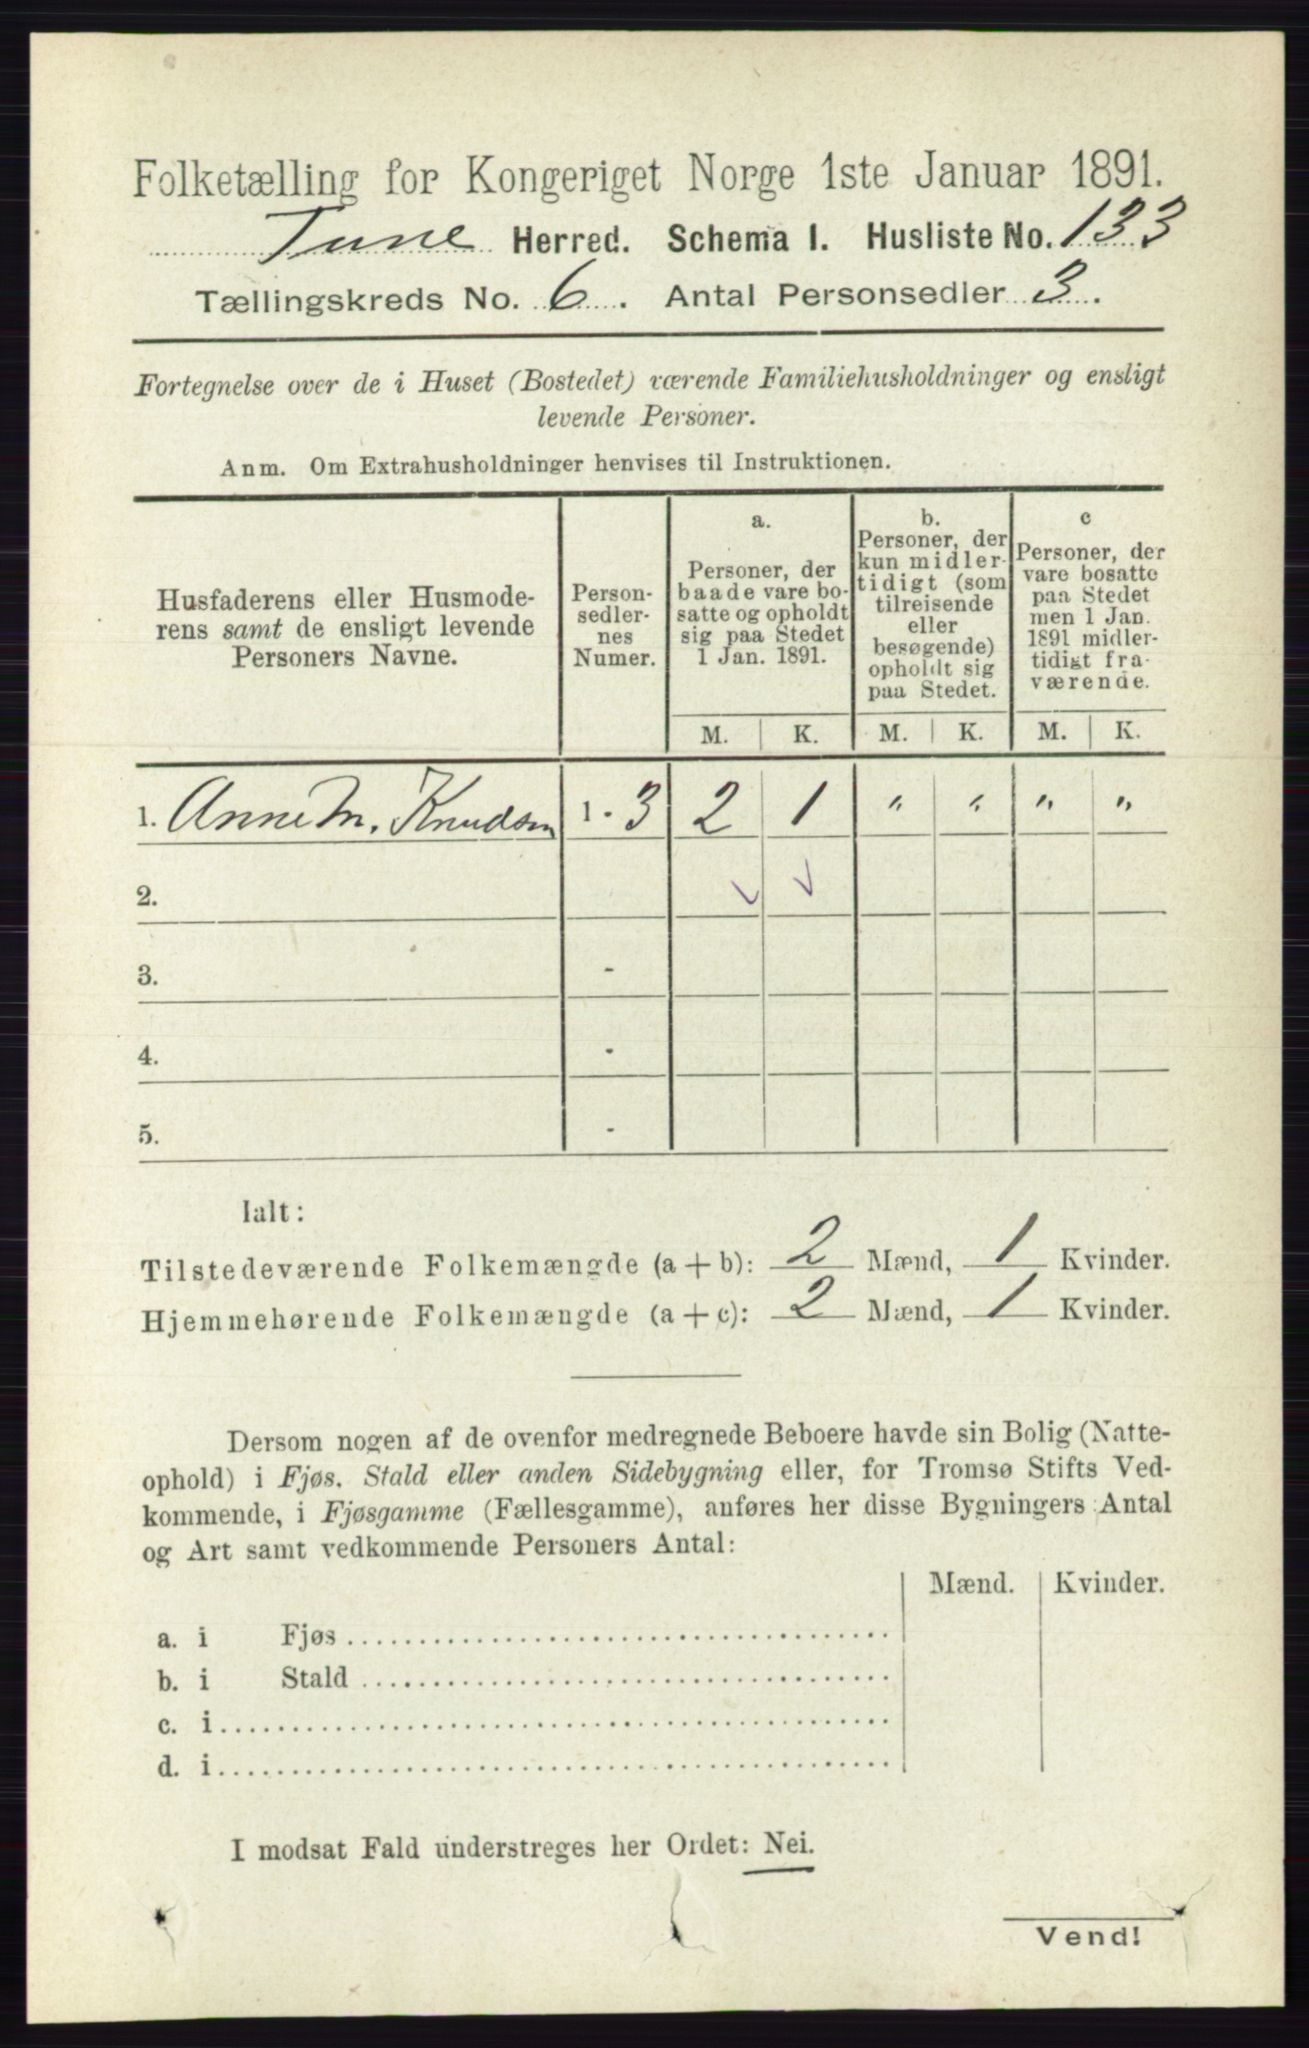 Folketælling for Kongeriget Norge 1ste Januar 1891.
Tune Herred. Schema I. Husliste No. 133
Tællingskreds No. 6. Antal Personsedler 3.
Fortegnelse over de i Huset (Bostedet) værende Familiehusholdninger og ensligt
levende Personer.
Anm. Om Extrahusholdninger henvises til Instruktionen.
Husfaderens eller Husmode-
rens samt de ensligt levende
Personers Navne.
Person-
sedler-
nes
Numer.
a.
Personer, der
baade vare bo-
satte og opholdt
sig paa Stedet
1 Jan. 1891.
b.
Personer, der
kun midler-
tidigt (som
tilreisende
eller
besøgende)
opholdt sig
paa Stedet.
c
Personer, der
vare bosatte
paa Stedet
men 1 Jan.
1891 midler-
tidigt fra-
værende.
M. K. M. K. M. K.
1. Anne M. Knudsen 1 - 3 2 1 " " " "
2. ✓ ✓
3. -
4. -
5. -
Ialt:
Tilstedeværende Folkemængde (a + b): 2 Mænd, 1 Kvinder.
Hjemmehørende Folkemængde (a + c): 2 Mænd, 1 Kvinder.
Dersom nogen af de ovenfor medregnede Beboere havde sin Bolig (Natte-
ophold) i Fjøs, Stald eller anden Sidebygning eller, for Tromsø Stifts Ved-
kommende, i Fjøsgamme (Fællesgamme), anføres her disse Bygningers Antal
og Art samt vedkommende Personers Antal:
Mænd. Kvinder.
a. i Fjøs
b. i Stald
c. i
d. i
I modsat Fald understreges her Ordet: Nei.
Vend!